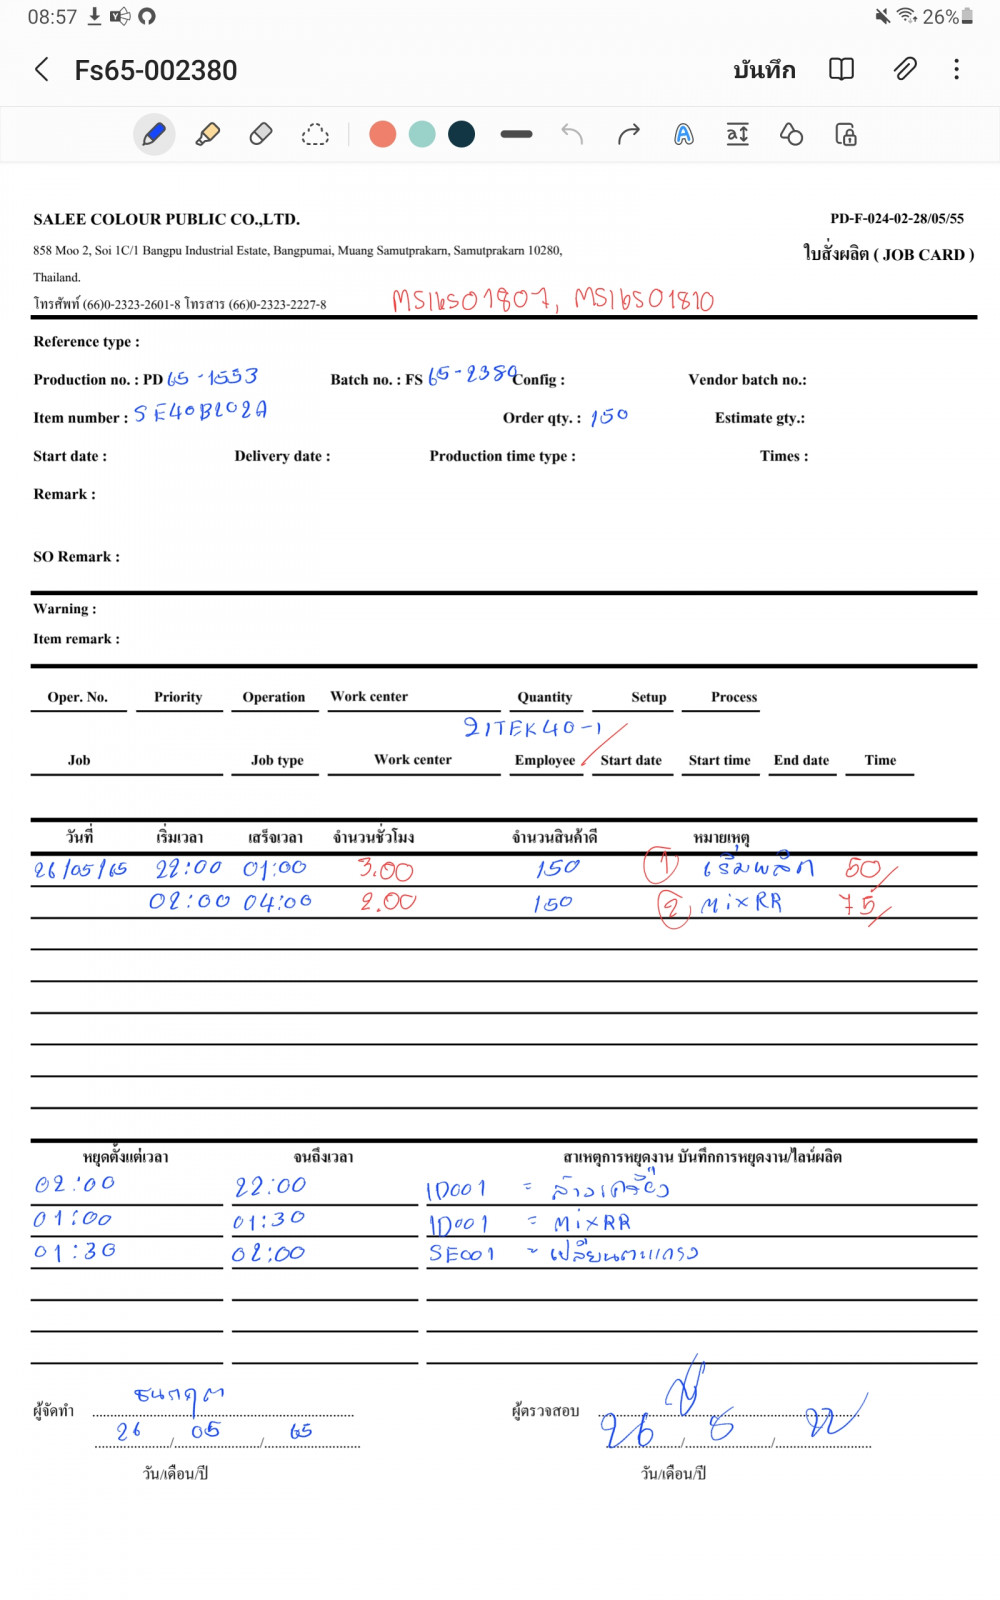 08:57 26%
Fs65-002380 บันทึก
SALEE COLOUR PUBLIC CO.,LTD. PD-F-024-02-28/05/55
858 Moo 2, Soi 1C/1 Bangpu Industrial Estate, Bangpumai, Muang Samutprakarn, Samutprakarn 10280, ใบสั่งผลิต ( JOB CARD )
Thailand.
โทรศัพท์ (66)0-2323-2601-8 โทรสาร (66)0-2323-2227-8 MS16S01807, MS16S01810
Reference type :
Production no. : PD 65-1553 Batch no. : FS 65-2380 Config : Vendor batch no.:
Item number : SE40B202A Order qty. : 150 Estimate gty.:
Start date : Delivery date : Production time type : Times :
Remark :
SO Remark :
Warning :
Item remark :
Oper. No. Priority Operation Work center Quantity Setup Process
21TEK40-1
Job Job type Work center Employee Start date Start time End date Time
วันที่ เริ่มเวลา เสร็จเวลา จำนวนชั่วโมง จำนวนสินค้าดี หมายเหตุ
26/05/65 22:00 01:00 3.00 150 1 เริ่มผลิต 50/
02:00 04:00 2.00 150 2 MixRR 75/
หยุดตั้งแต่เวลา จนถึงเวลา สาเหตุการหยุดงาน บันทึกการหยุดงาน/ไลน์ผลิต
02:00 22:00 ID001 = ล้างเครื่อง
01:00 01:30 ID001 = MixRR
01:30 02:00 SE001 = เปลี่ยนตะแกรง
ผู้จัดทำ ธนกฤต ผู้ตรวจสอบ
26 / 05 / 65 26 / 8 / 22
วัน/เดือน/ปี วัน/เดือน/ปี